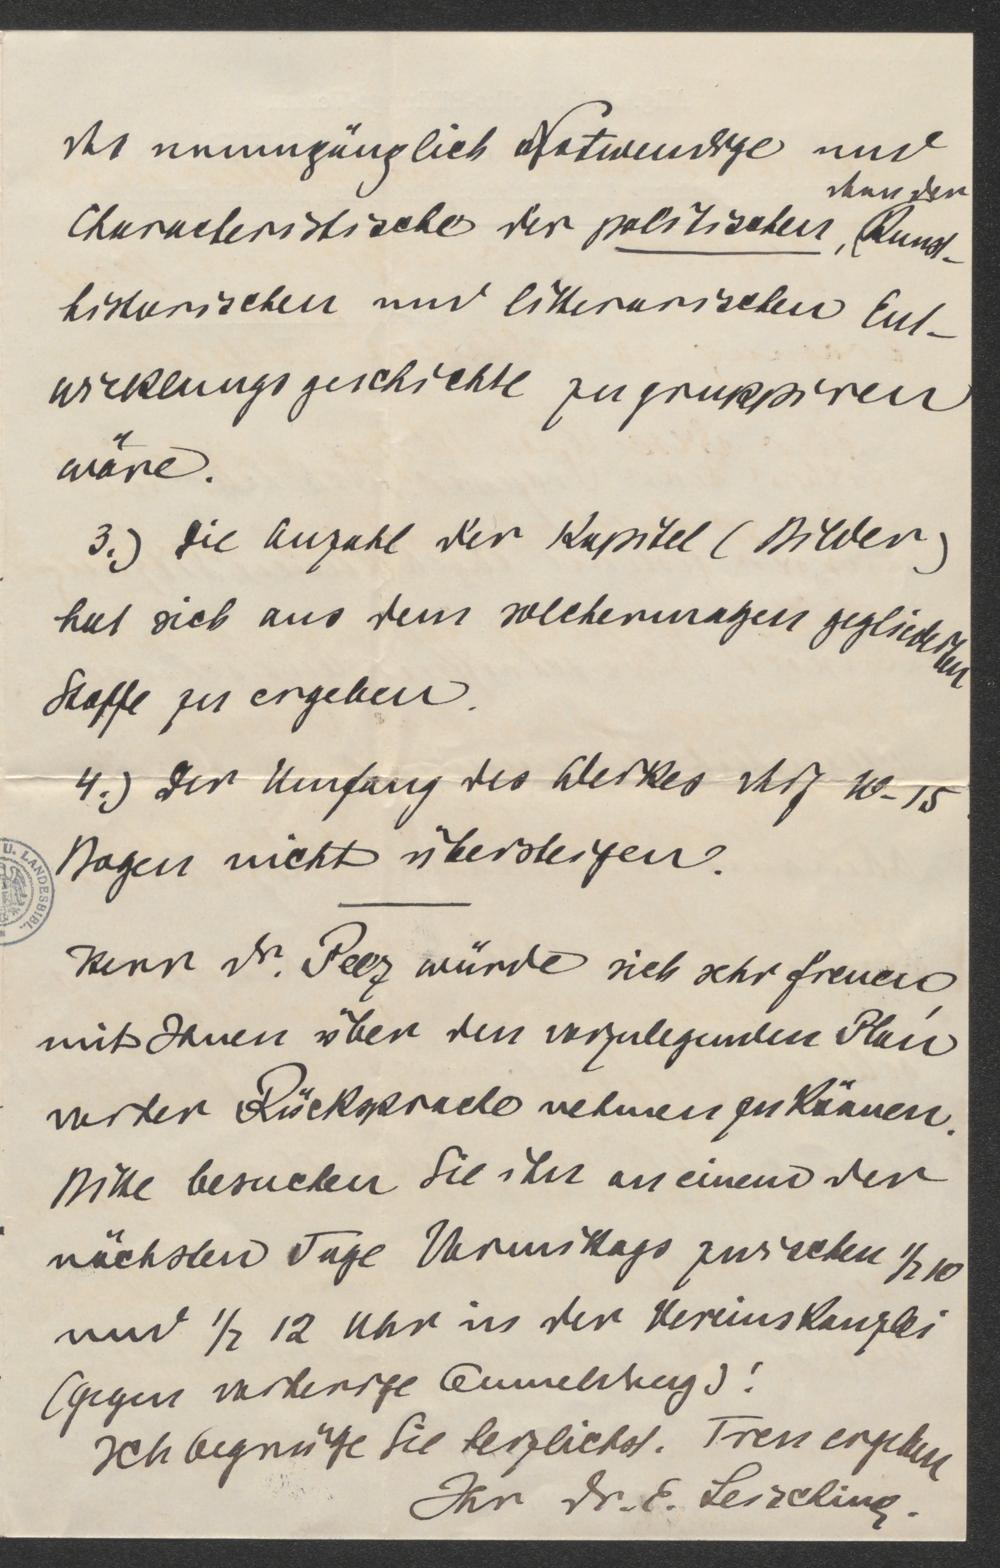 das unumgänglich Notwendige und
Characteristische der politischen, dann der Kunst-
historischen und litterarischen Ent-
wicklungsgeschichte zu gruppiren
wäre.
3.) Die Anzahl der Kapitel (Bilder)
hat sich aus dem solchermaßen gegliederten
Stoffe zu ergeben.
4.) Der Umfang des Werkes darf 10-15
Bogen nicht übersteigen.
U. LANDESBIBL.
Herr Dr. Peez würde sich sehr freuen,
mit Ihnen über den vorzulegenden Plan
vorher Rücksprache nehmen zu können.
Bitte besuchen Sie ihn an einem der
nächsten Tage Vormittags zwischen 1/2 10
und 1/2 12 Uhr in der Vereinskanzlei
(gegen vorherige Anmeldung)!
Ich begrüße Sie herzlichst. Treu ergeben
Ihr Dr. E. Leisching.